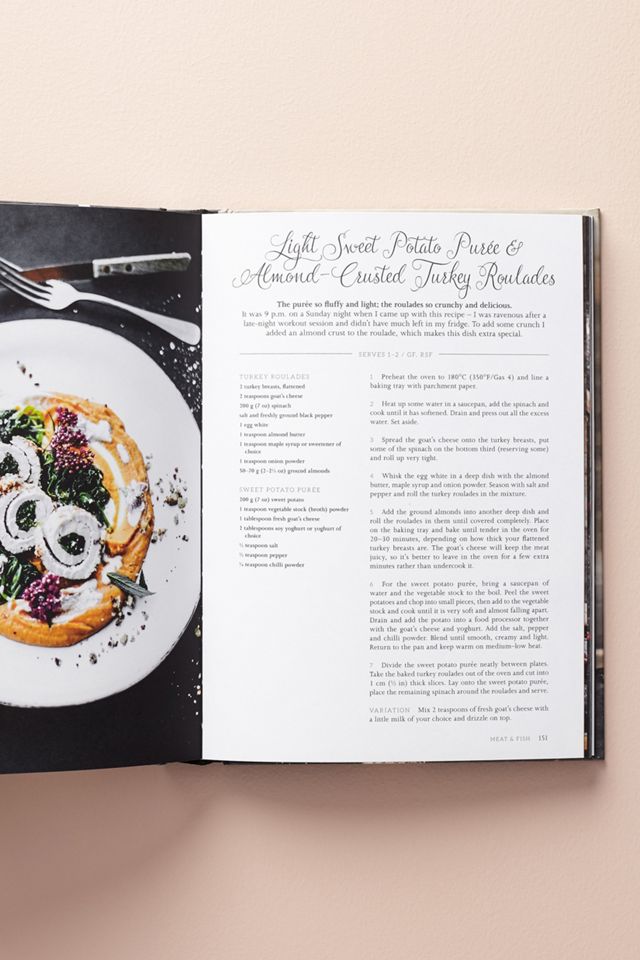 Light Sweet Potato Purée &
Almond-Crusted Turkey Roulades
The purée so fluffy and light; the roulades so crunchy and delicious.
It was 9 p.m. on a Sunday night when I came up with this recipe – I was ravenous after a
late-night workout session and didn't have much left in my fridge. To add some crunch I
added an almond crust to the roulade, which makes this dish extra special.
SERVES 1-2 / GF, RSF
TURKEY ROULADES
2 turkey breasts, flattened
2 teaspoons goat's cheese
200 g (7 oz) spinach
salt and freshly ground black pepper
1 egg white
1 teaspoon almond butter
1 teaspoon maple syrup or sweetener of
choice
1 teaspoon onion powder
50-70 g (2-2½ oz) ground almonds
SWEET POTATO PURÉE
200 g (7 oz) sweet potato
1 teaspoon vegetable stock (broth) powder
1 tablespoon fresh goat's cheese
2 tablespoons soy yoghurt or yoghurt of
choice
teaspoon salt
teaspoon pepper
teaspoon chilli powder
1 Preheat the oven to 180°C (350°F/Gas 4) and line a
baking tray with parchment paper.
2 Heat up some water in a saucepan, add the spinach and
cook until it has softened. Drain and press out all the excess
water. Set aside.
3 Spread the goat's cheese onto the turkey breasts, put
some of the spinach on the bottom third (reserving some)
and roll up very tight.
4 Whisk the egg white in a deep dish with the almond
butter, maple syrup and onion powder. Season with salt and
pepper and roll the turkey roulades in the mixture.
5 Add the ground almonds into another deep dish and
roll the roulades in them until covered completely. Place
on the baking tray and bake until tender in the oven for
20–30 minutes, depending on how thick your flattened
turkey breasts are. The goat's cheese will keep the meat
juicy, so it's better to leave in the oven for a few extra
minutes rather than undercook it.
6 For the sweet potato purée, bring a saucepan of
water and the vegetable stock to the boil. Peel the sweet
potatoes and chop into small pieces, then add to the vegetable
stock and cook until it is very soft and almost falling apart.
Drain and add the potato into a food processor together
with the goat's cheese and yoghurt. Add the salt, pepper
and chilli powder. Blend until smooth, creamy and light.
Return to the pan and keep warm on medium-low heat.
7 Divide the sweet potato purée neatly between plates.
Take the baked turkey roulades out of the oven and cut into
1 cm (½ in) thick slices. Lay onto the sweet potato purée,
place the remaining spinach around the roulades and serve.
VARIATION Mix 2 teaspoons of fresh goat's cheese with
a little milk of your choice and drizzle on top.
MEAT & FISH 151